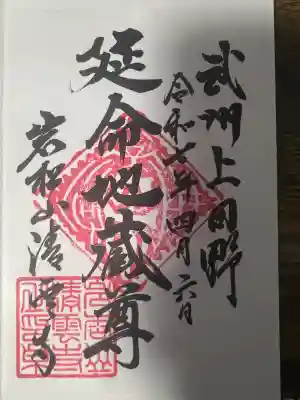 武州上田野
令和七年四月六日
延命地蔵尊
岩松山清雲寺